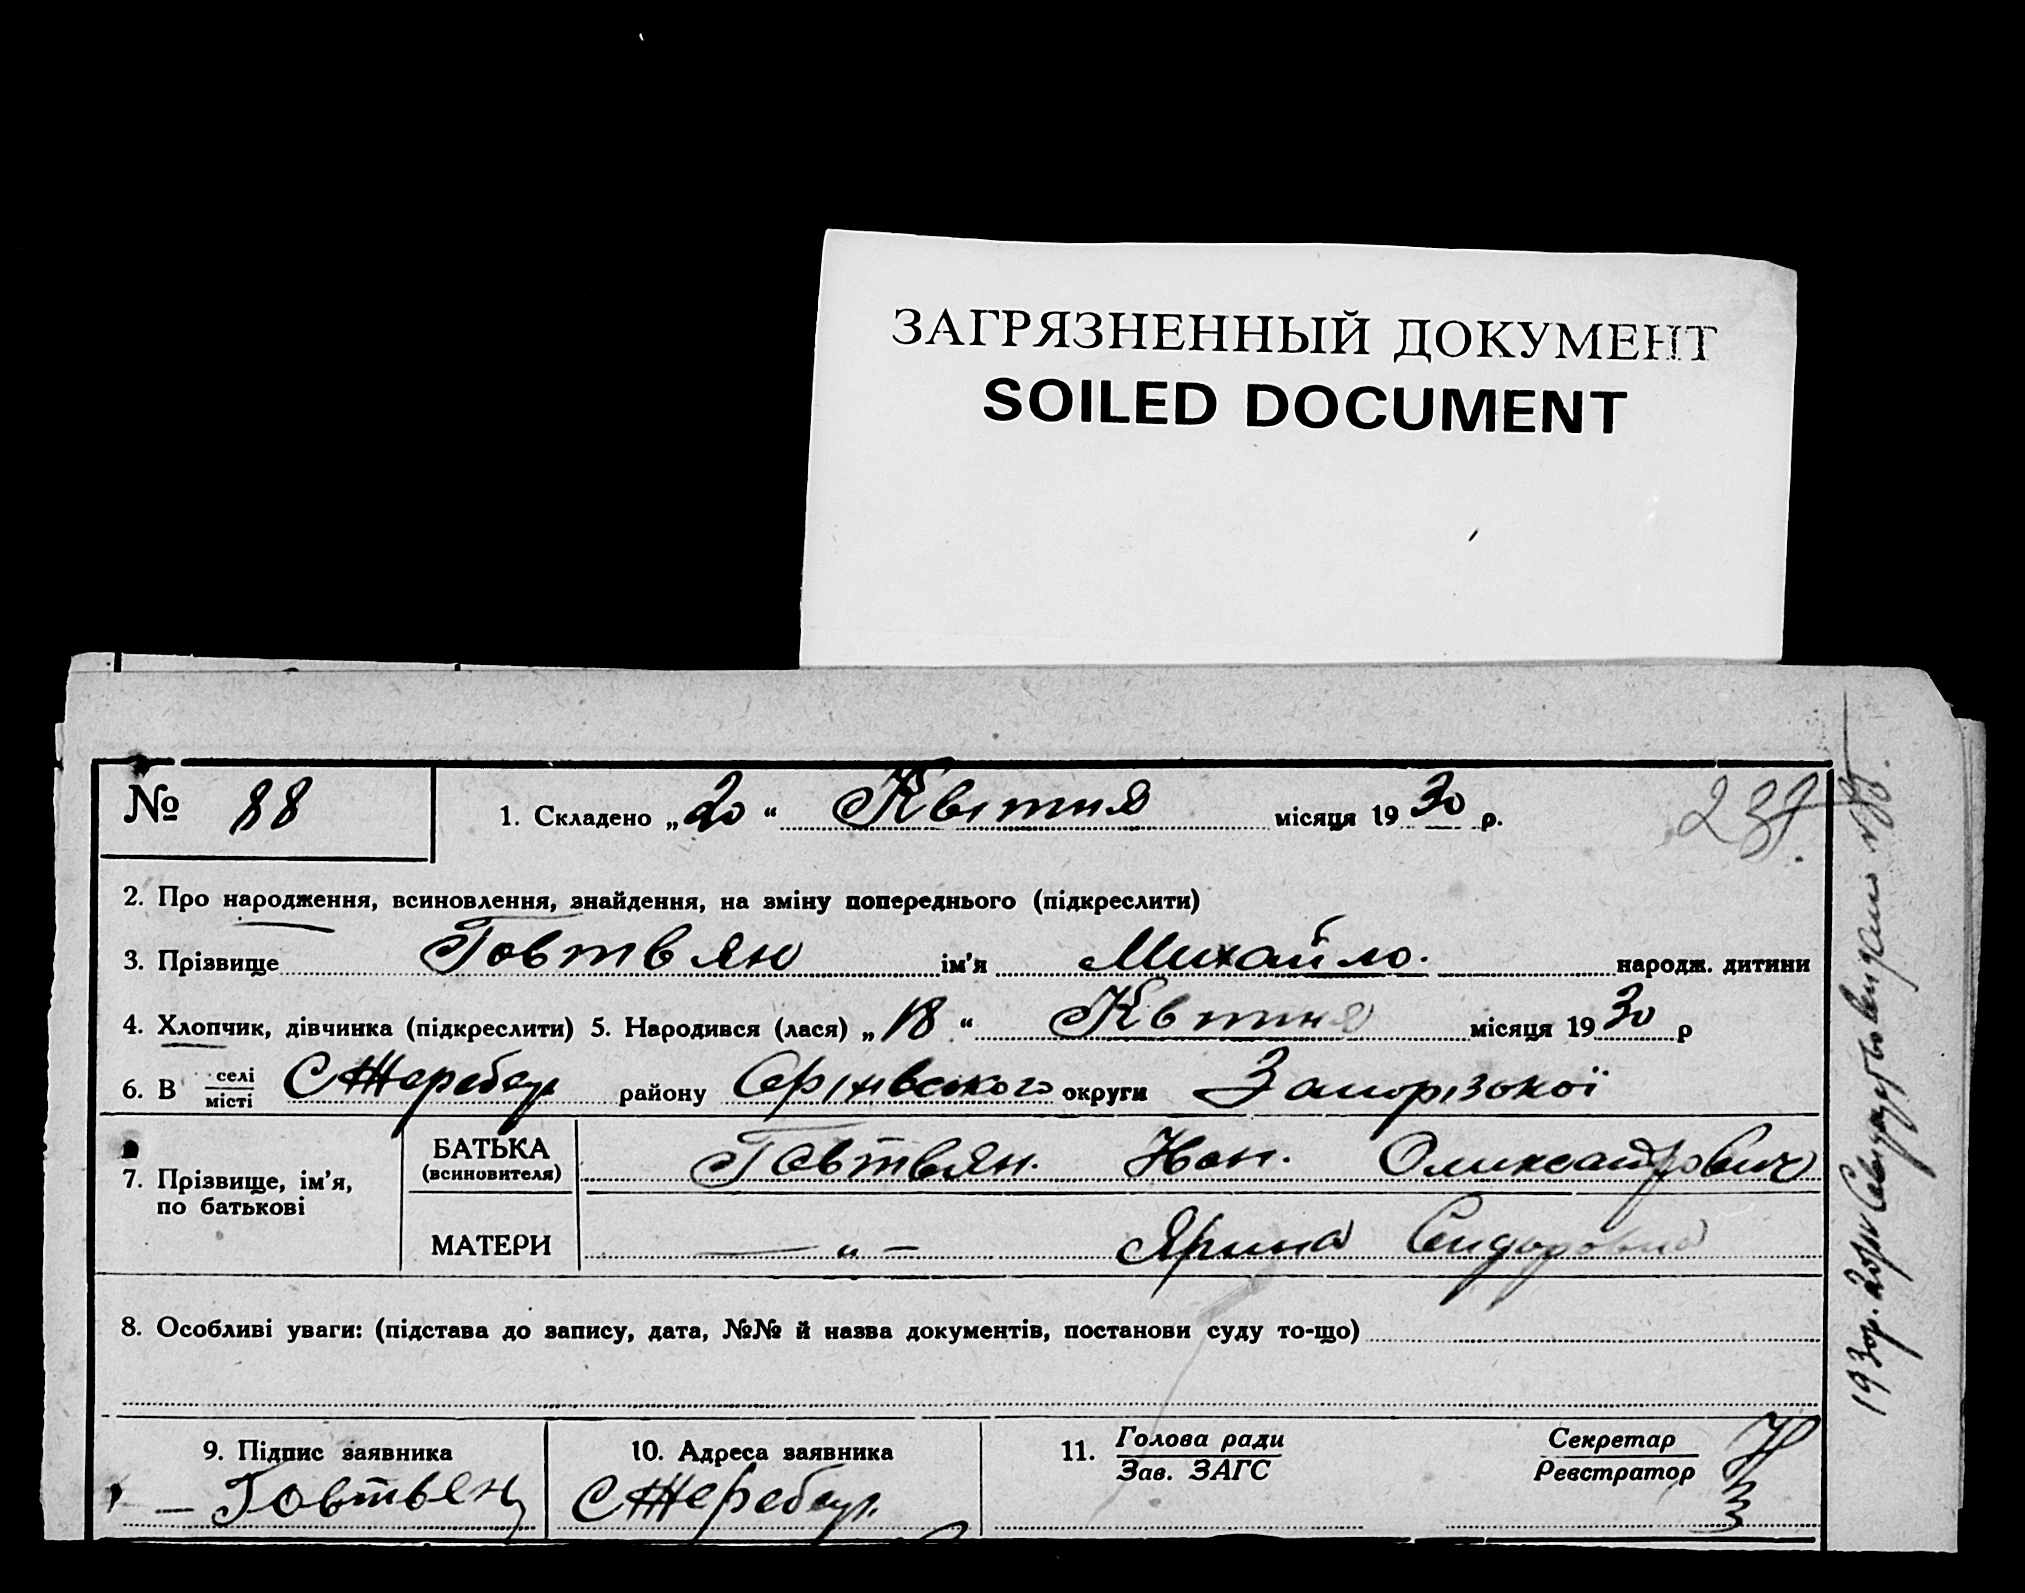 ЗАГРЯЗНЕННЫЙ ДОКУМЕНТ
SOILED DOCUMENT
№ 88
1. Складено „20“ Квітня місяця 1930 р.
2. Про народження, всиновлення, знайдення, на зміну попереднього (підкреслити)
3. Прізвище Говтвян ім'я Михайло. народж. дитини
4. Хлопчик, дівчинка (підкреслити) 5. Народився (лася) „18“ Квтня місяця 1930 р
6. В селі/місті С Жеребец району округи Запорізокої
7. Прізвище, ім'я, по батькові
БАТЬКА (всиновителя) Говтвян. Олександрович
МАТЕРИ — „ — Ярина Сидоровна
8. Особливі уваги: (підстава до запису, дата, №№ й назва документів, постанови суду то-що)
9. Підпис заявника
10. Адреса заявника
11. Голова ради
Зав. ЗАГС
Секретар
Реєстратор
— Говтвян
С Жеребец.